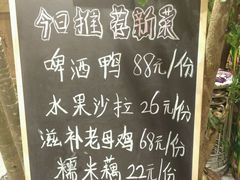 今日推荐新菜
啤酒鸭 88元/份
水果沙拉 26元/份
滋补老母鸡 68元/份
糯米藕 22元/份